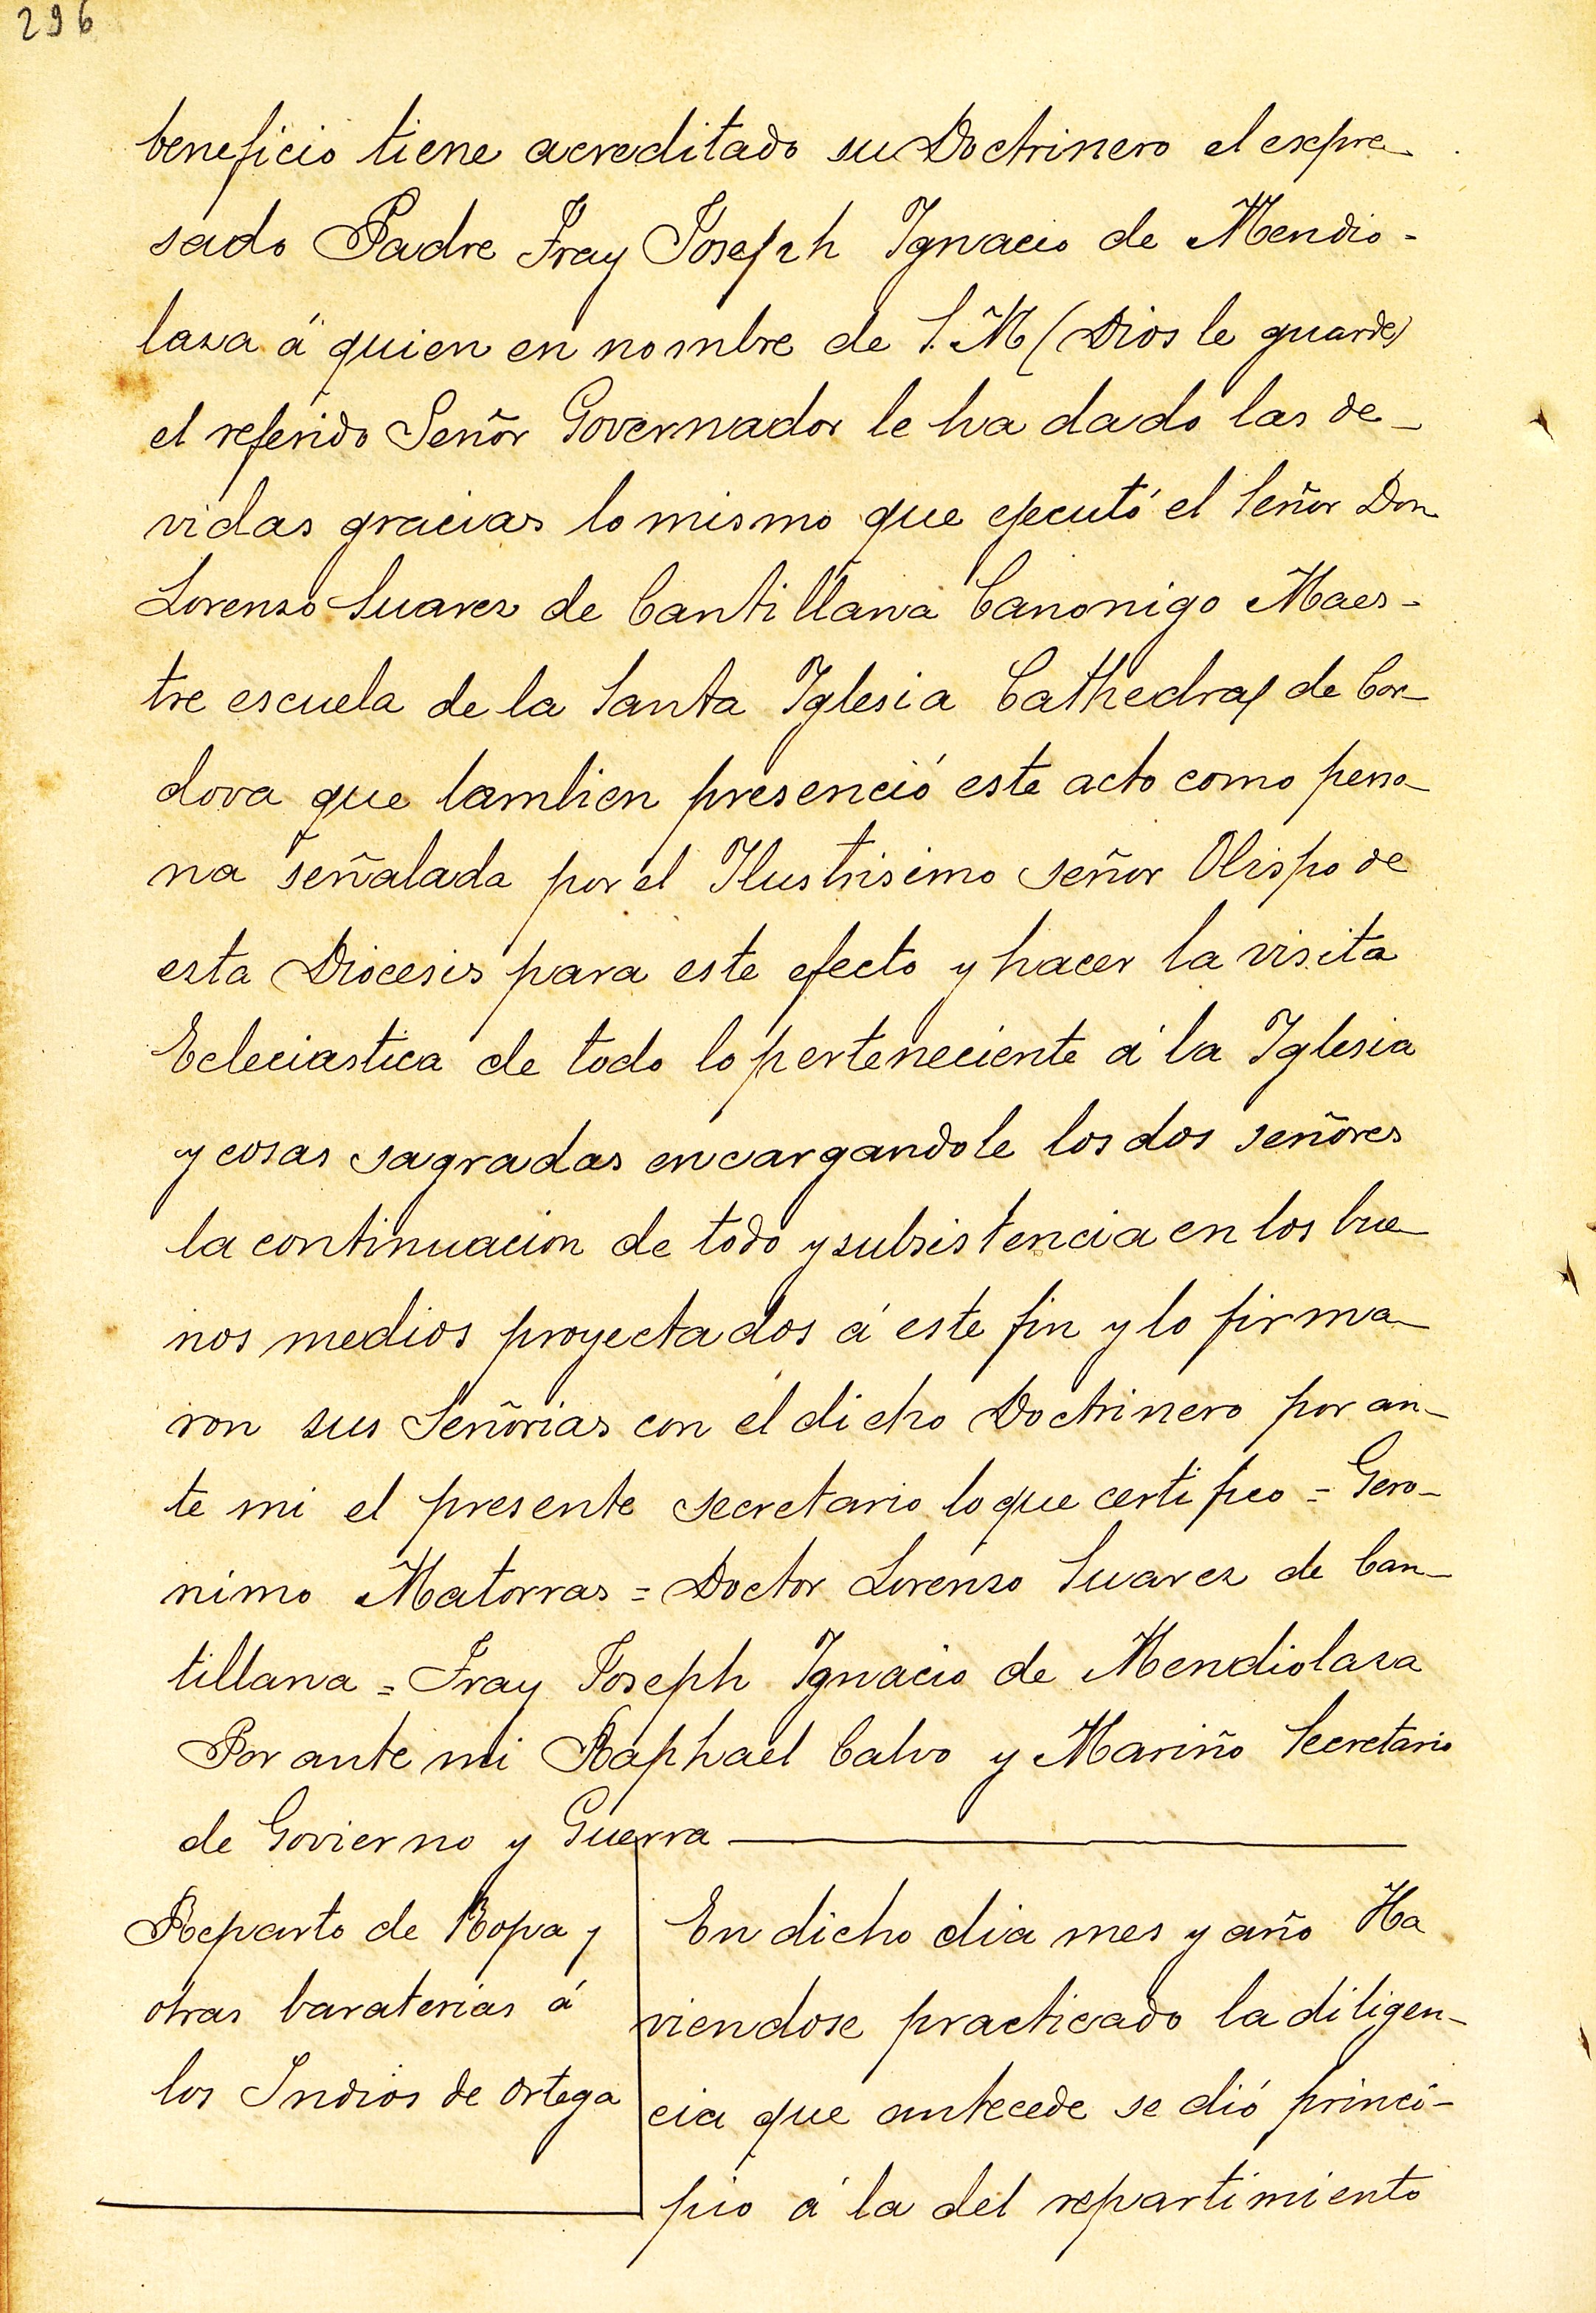 296
beneficio tiene acreditado su Doctrinero el expre-
sado Padre Fray Joseph Ignacio de Mendio-
lasa á quien en nombre de S. M (Dios le guarde)
el referido Señor Governador le ha dado las de-
vidas gracias lo mismo que ejecutó el Señor Don
Lorenzo Suarez de Cantillana Canonigo Maes-
tre escuela de la Santa Iglesia Cathedral de Cor-
dova que tambien presenció este acto como perso-
na señalada por el Ilustrisimo señor Obispo de
esta Diocesis para este efecto y hacer la visita
Ecleciastica de todo lo perteneciente á la Iglesia
y cosas sagradas encargandole los dos señores
la continuacion de todo y subsistencia en los bue-
nos medios proyectados á este fin y lo firma-
ron sus Señorias con el dicho Doctrinero por an-
te mi el presente secretario lo que certifico = Gero-
nimo Matorras = Doctor Lorenzo Suarez de Can-
tillana = Fray Joseph Ignacio de Mendiolasa
Por ante mi Raphael Calvo y Mariño Secretario
de Govierno y Guerra
Reparto de Ropa y
otras baraterias á
los Indios de Ortega
En dicho dia mes y año Ha
viendose practicado la diligen-
cia que antecede se dió princi-
pio á la del repartimiento